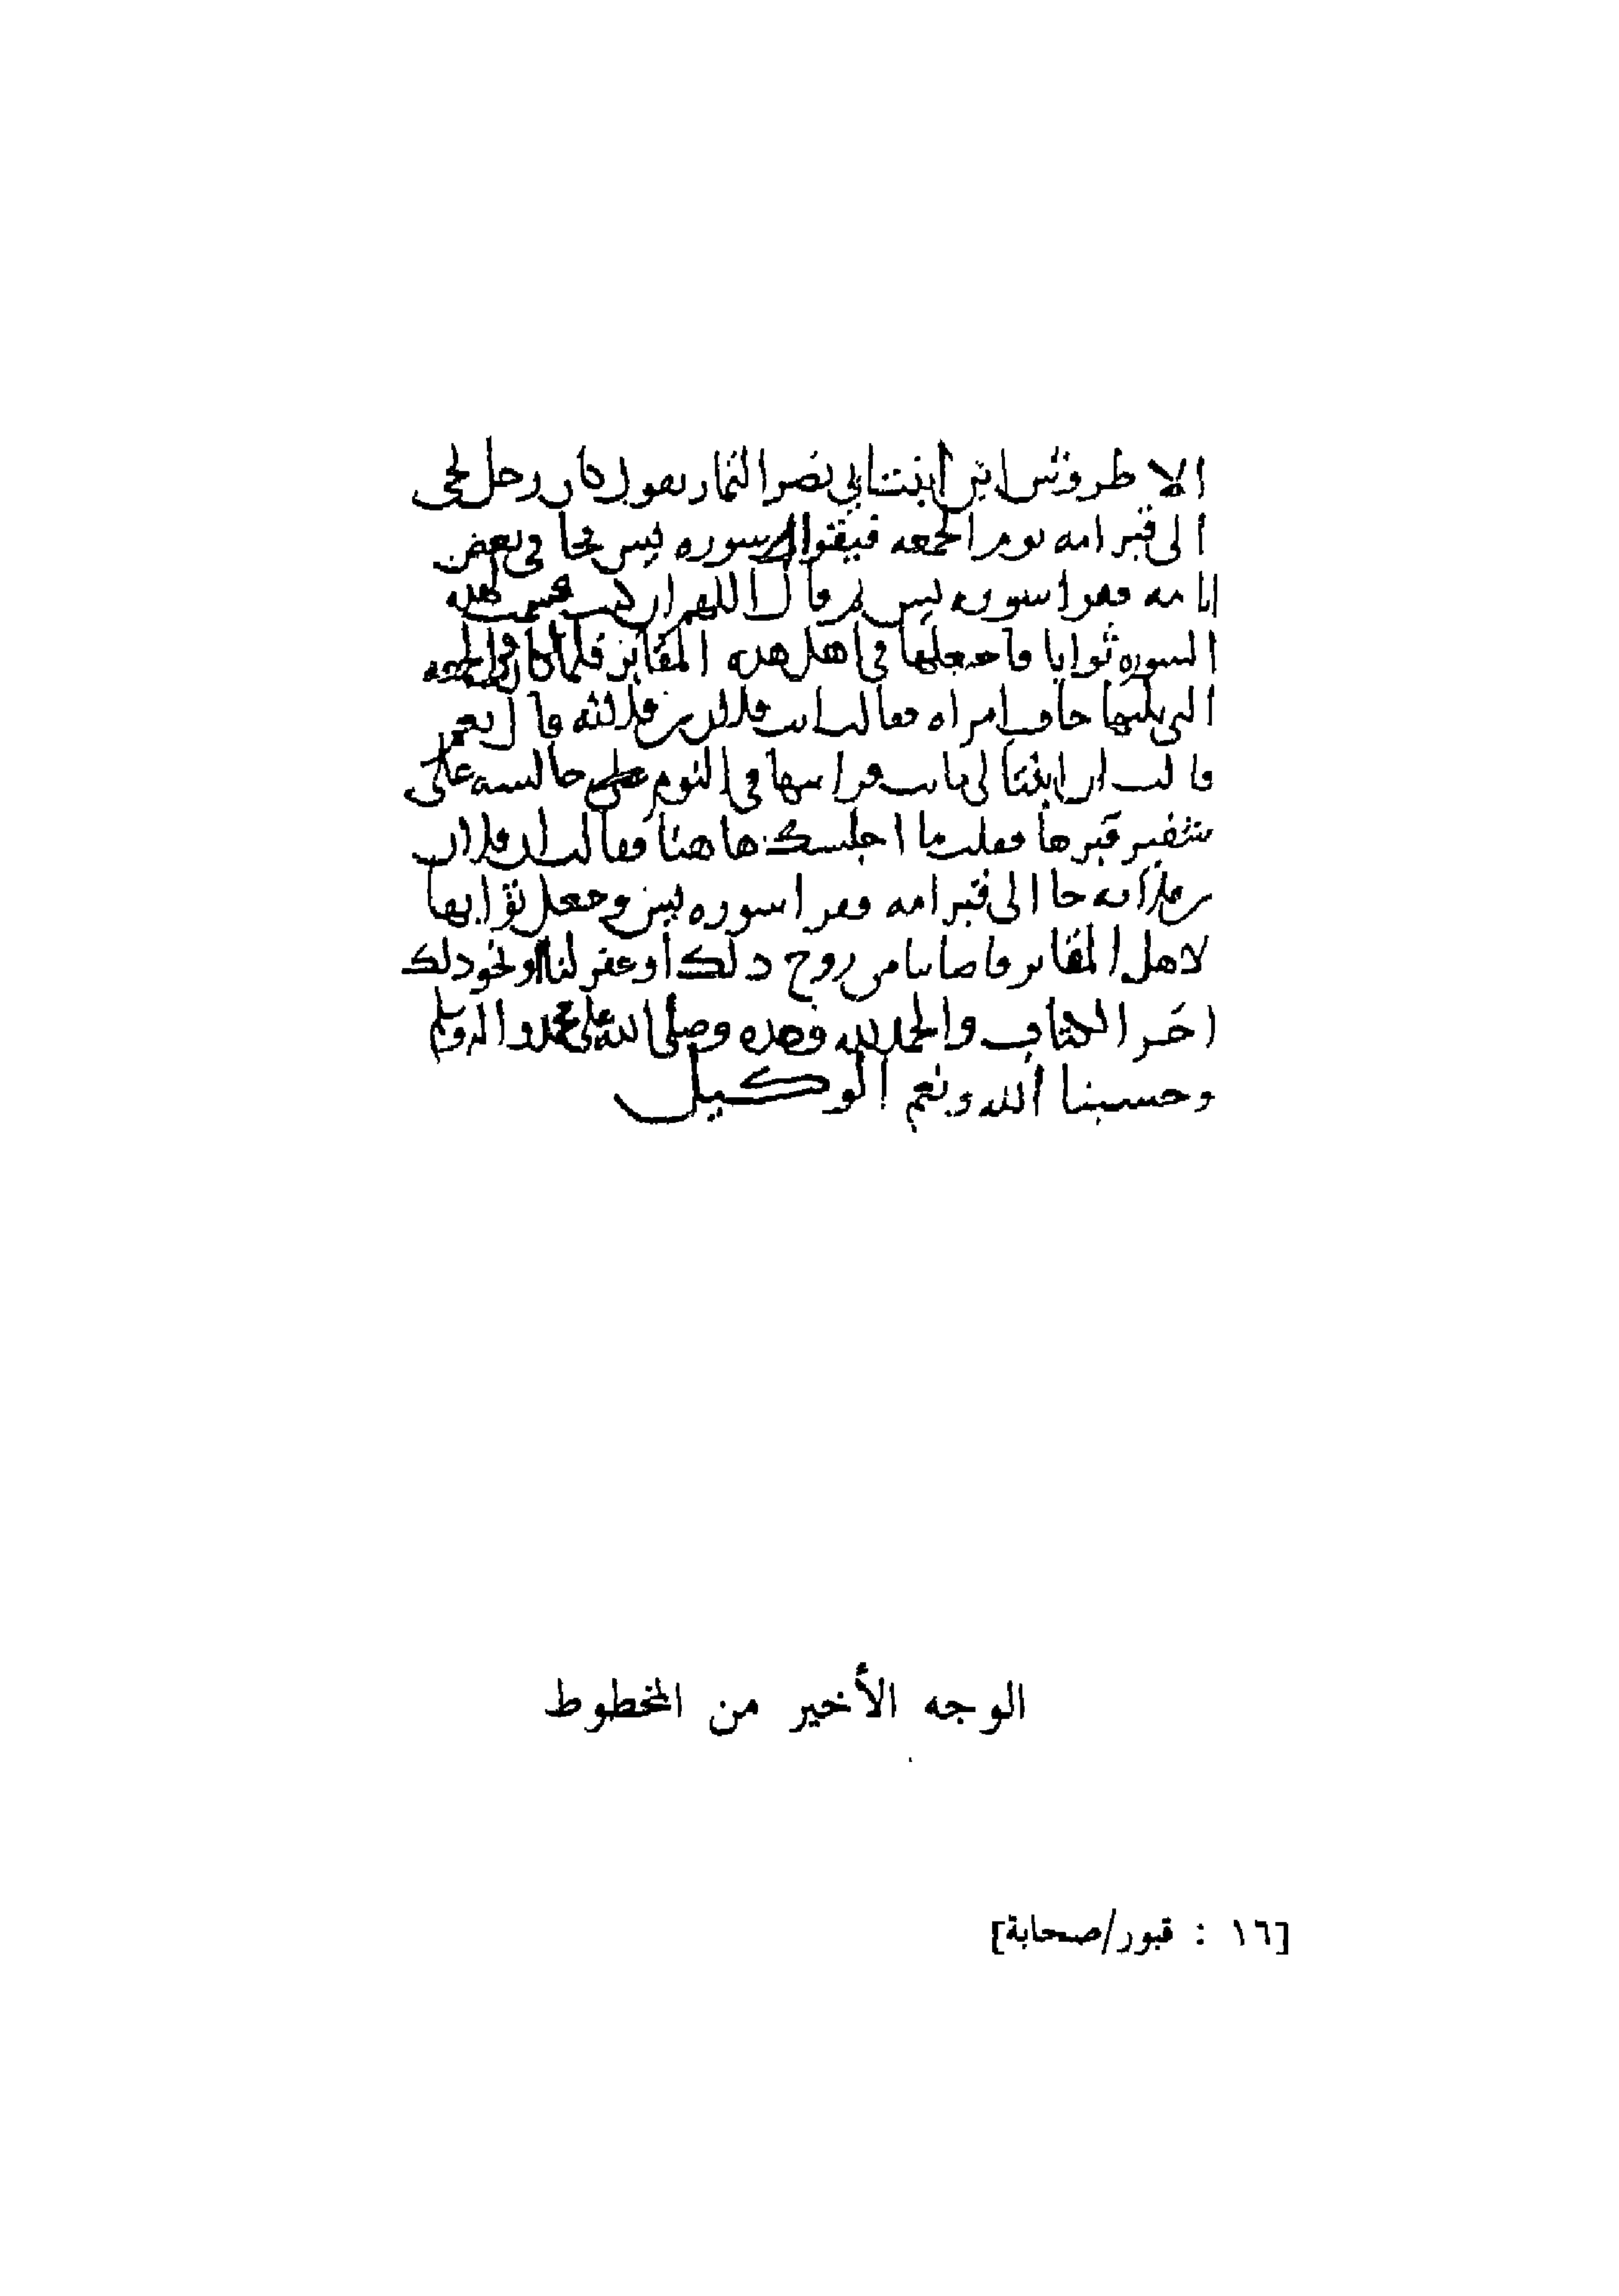 الاطروش ابن ابنت ابي نصر التمار يقول كان رجل يجي
الى قبر امه يوم الجمعه فيقرا سوره يس فجا في بعض
ايامه فقرا سوره يس ثم قال اللهم ان كنت قسمت لهذه
السوره ثوابا فاجعلها في اهل هذه المقابر فلما كان في الجمعه
التي يليها جات امراه فقالت انت فلان بن فلانه قال نعم
قالت ان ابنتا لي ماتت فرايتها في النوم جالسه على
شفير قبرها فقلت ما اجلسك هاهنا فقالت ان فلان
بن فلانه جا الى قبر امه فقرا سوره يس وجعل ثوابها
لاهل المقابر فاصابنا من روح ذلك او غفر لنا او نحو ذلك
اخر الكتاب والحمد لله وحده وصلى الله على محمد واله وسلم
وحسبنا الله ونعم الوكيل
الوجه الأخير من المخطوط
[١٦ : قبور/صحابة]